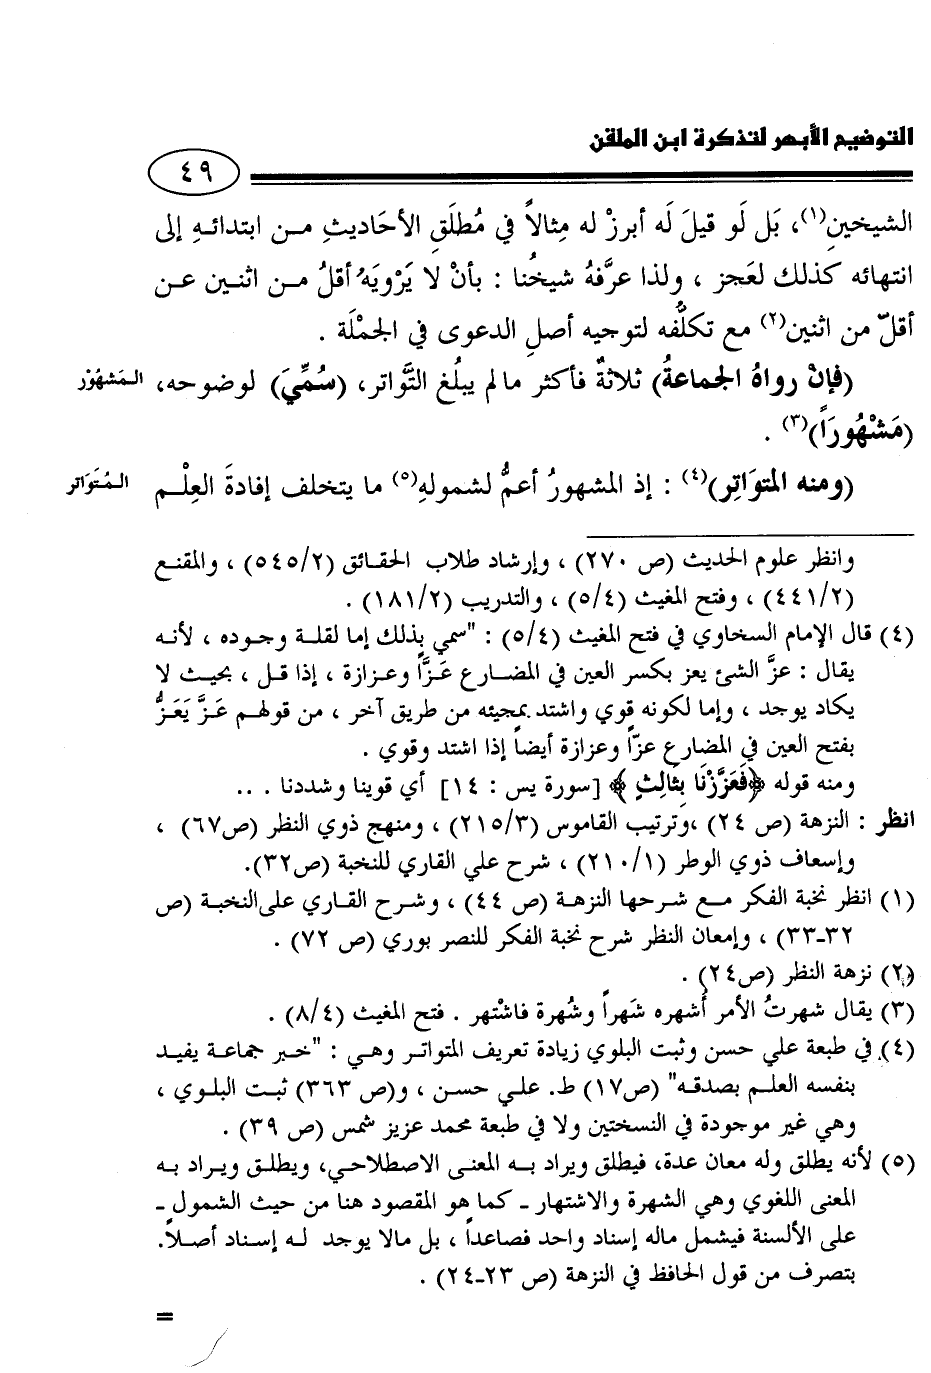 التوضيح الأبهر لتذكرة ابن الملقن
٤٩
الشيخين(١)، بَل لَو قيلَ لَه أبرزْ له مِثالاً في مُطلَقِ الأحَاديثِ مـن ابتدائـهِ إلى
انتهائه كذلك لعَجز ، ولذا عرَّفهُ شيخُنا : بأنْ لا يَرْويَهُ أقلُ مـن اثنـين عـن
أقلّ من اثنين(٢) مع تكلُّفه لتوجيه أصلِ الدعوى في الجمْلَة .
(فإنْ رواهُ الجماعةُ) ثلاثةٌ فأكثر مالم يبلُغ التَّواتر، (سُمِّيَ) لوضوحه، المَشهُوْر
(مَشْهُورَاً)(٣) .
(ومنه المتوَاتِر)(٤) : إذ المشهورُ أعمُّ لشمولهِ(٥) ما يتخلف إفادةَ العِلْـم المُتَوَاتر
وانظر علوم الحديث (ص ٢٧٠) ، وإرشاد طلاب الحقائق (٥٤٥/٢) ، والمقنع
(٤٤١/٢) ، وفتح المغيث (٥/٤) ، والتدريب (١٨١/٢) .
(٤) قال الإمام السخاوي في فتح المغيث (٥/٤) : "سمي بذلك إما لقلة وجوده ، لأنـه
يقال : عزَّ الشئ يعز بكسر العين في المضـارع عَـزَّاً وعـزازة ، إذا قـل ، بحيث لا
يكاد يوجد ، وإما لكونه قوي واشتد بمجيئه من طريق آخر ، من قولهـم عَـزَّ يَعَـزُّ
بفتح العين في المضارع عزّاً وعزازة أيضاً إذا اشتد وقوي .
ومنه قوله ﴿فَعَزَّزْنَا بِثَالِثٍ ﴾ [سورة يس : ١٤] أي قوينا وشددنا . ..
انظر : النزهة (ص ٢٤) ،وترتيب القاموس (٢١٥/٣) ، ومنهج ذوي النظر (ص٦٧) ،
وإسعاف ذوي الوطر (٢١٠/١) ، شرح علي القاري للنخبة (ص٣٢).
(١) انظر نخبة الفكر مـع شـرحها النزهـة (ص ٤٤) ، وشـرح القـاري على النخبـة (ص
٣٢-٣٣) ، وإمعان النظر شرح نخبة الفكر للنصر بوري (ص ٧٢) .
(٢) نزهة النظر (ص٢٤) .
(٣) يقال شهرتُ الأمر أُشهره شَهراً وشُهرة فاشْتهر . فتح المغيث (٨/٤) .
(٤) في طبعة علي حسن وثبت البلوي زيادة تعريف المتواتـر وهـي : "خـبر جماعـة يفيـد
بنفسه العلـم بصدقـه" (ص١٧) ط. علـي حسـن ، و(ص ٣٦٣) ثبـت البلـوي ،
وهي غير موجودة في النسختين ولا في طبعة محمد عزيز شمس (ص ٣٩) .
(٥) لأنه يطلق وله معان عدة، فيطلق ويراد بـه المعنى الاصطلاحـي، ويطلـق ويـراد بـه
المعنى اللغوي وهي الشهرة والاشتهار ـ كمـا هـو المقصود هنـا مـن حيث الشمول ـ
على الألسنة فيشمل ماله إسناد واحد فصاعداً ، بل مالا يوجد لـه إسـناد أصـلاً.
بتصرف من قول الحافظ في النزهة (ص ٢٣-٢٤) .
=